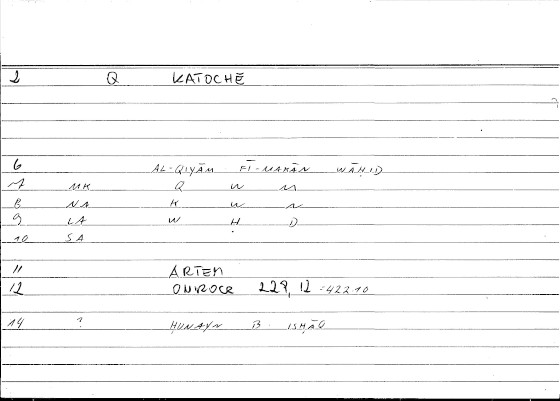 2 Q KATOCHĒ
6 AL-QIYĀM FĪ-MAKĀN WĀḤID
7 MK Q W M
8 NA K W N
9 LA W Ḥ D
10 SA
11 ARTEM
12 ONIROCR 228, 12 =42210
14 ? ḤUNAYN B. ISḤĀQ